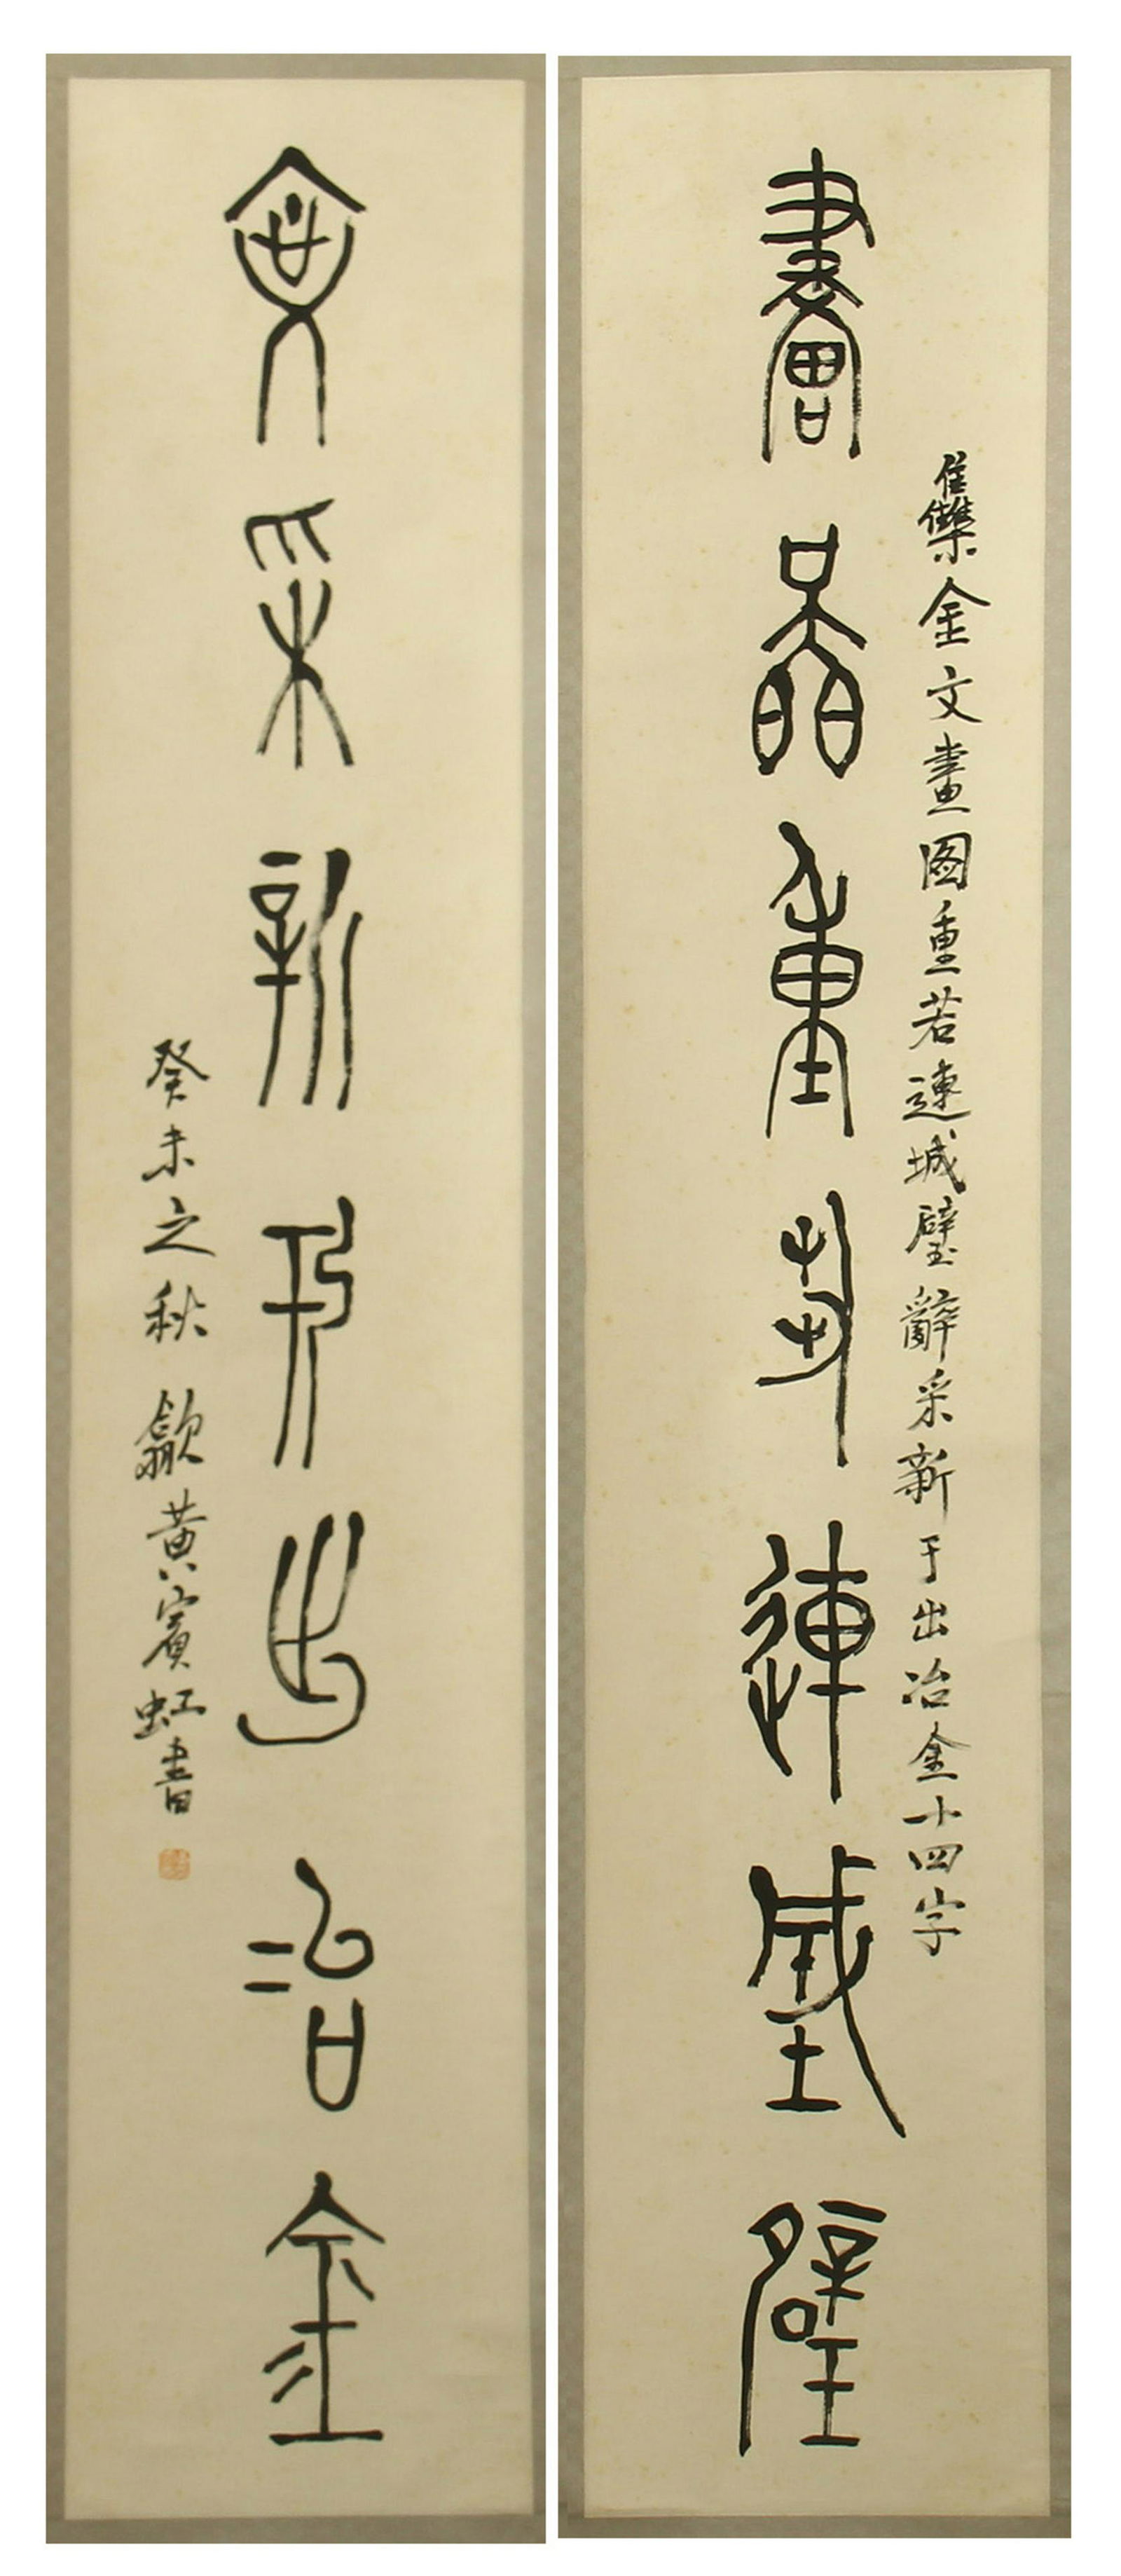 畫啚重若連城璧
雧金文畫图重若連城璧辭采新于出冶金十四字
辭采新于出冶金
癸未之秋 歙黃賓虹書